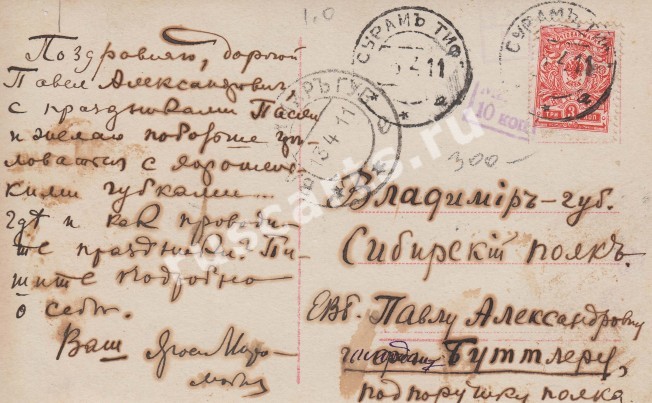 1.0
Поздравляю, дорогой
Павел Александрович
с праздниками Пасхи
и желаю побольше це-
ловаться с хорошень-
кими губками...
Гдѣ и как прово-
те праздники? Пи-
шите подробно
о себѣ.
Ваш
СУРАМЪ ТИФ.
5 4 11
а
СУРАМЪ ТИФ.
4 11
а
ГУБ.
13 4 11
10 коп
ТРИ 3 КОП
300-
Владимiръ-губ.
Сибирскiй полкъ.
ЕВБ. Павлу Александровичу
Буттлеру,
подпоручику полка
russcarts.ru